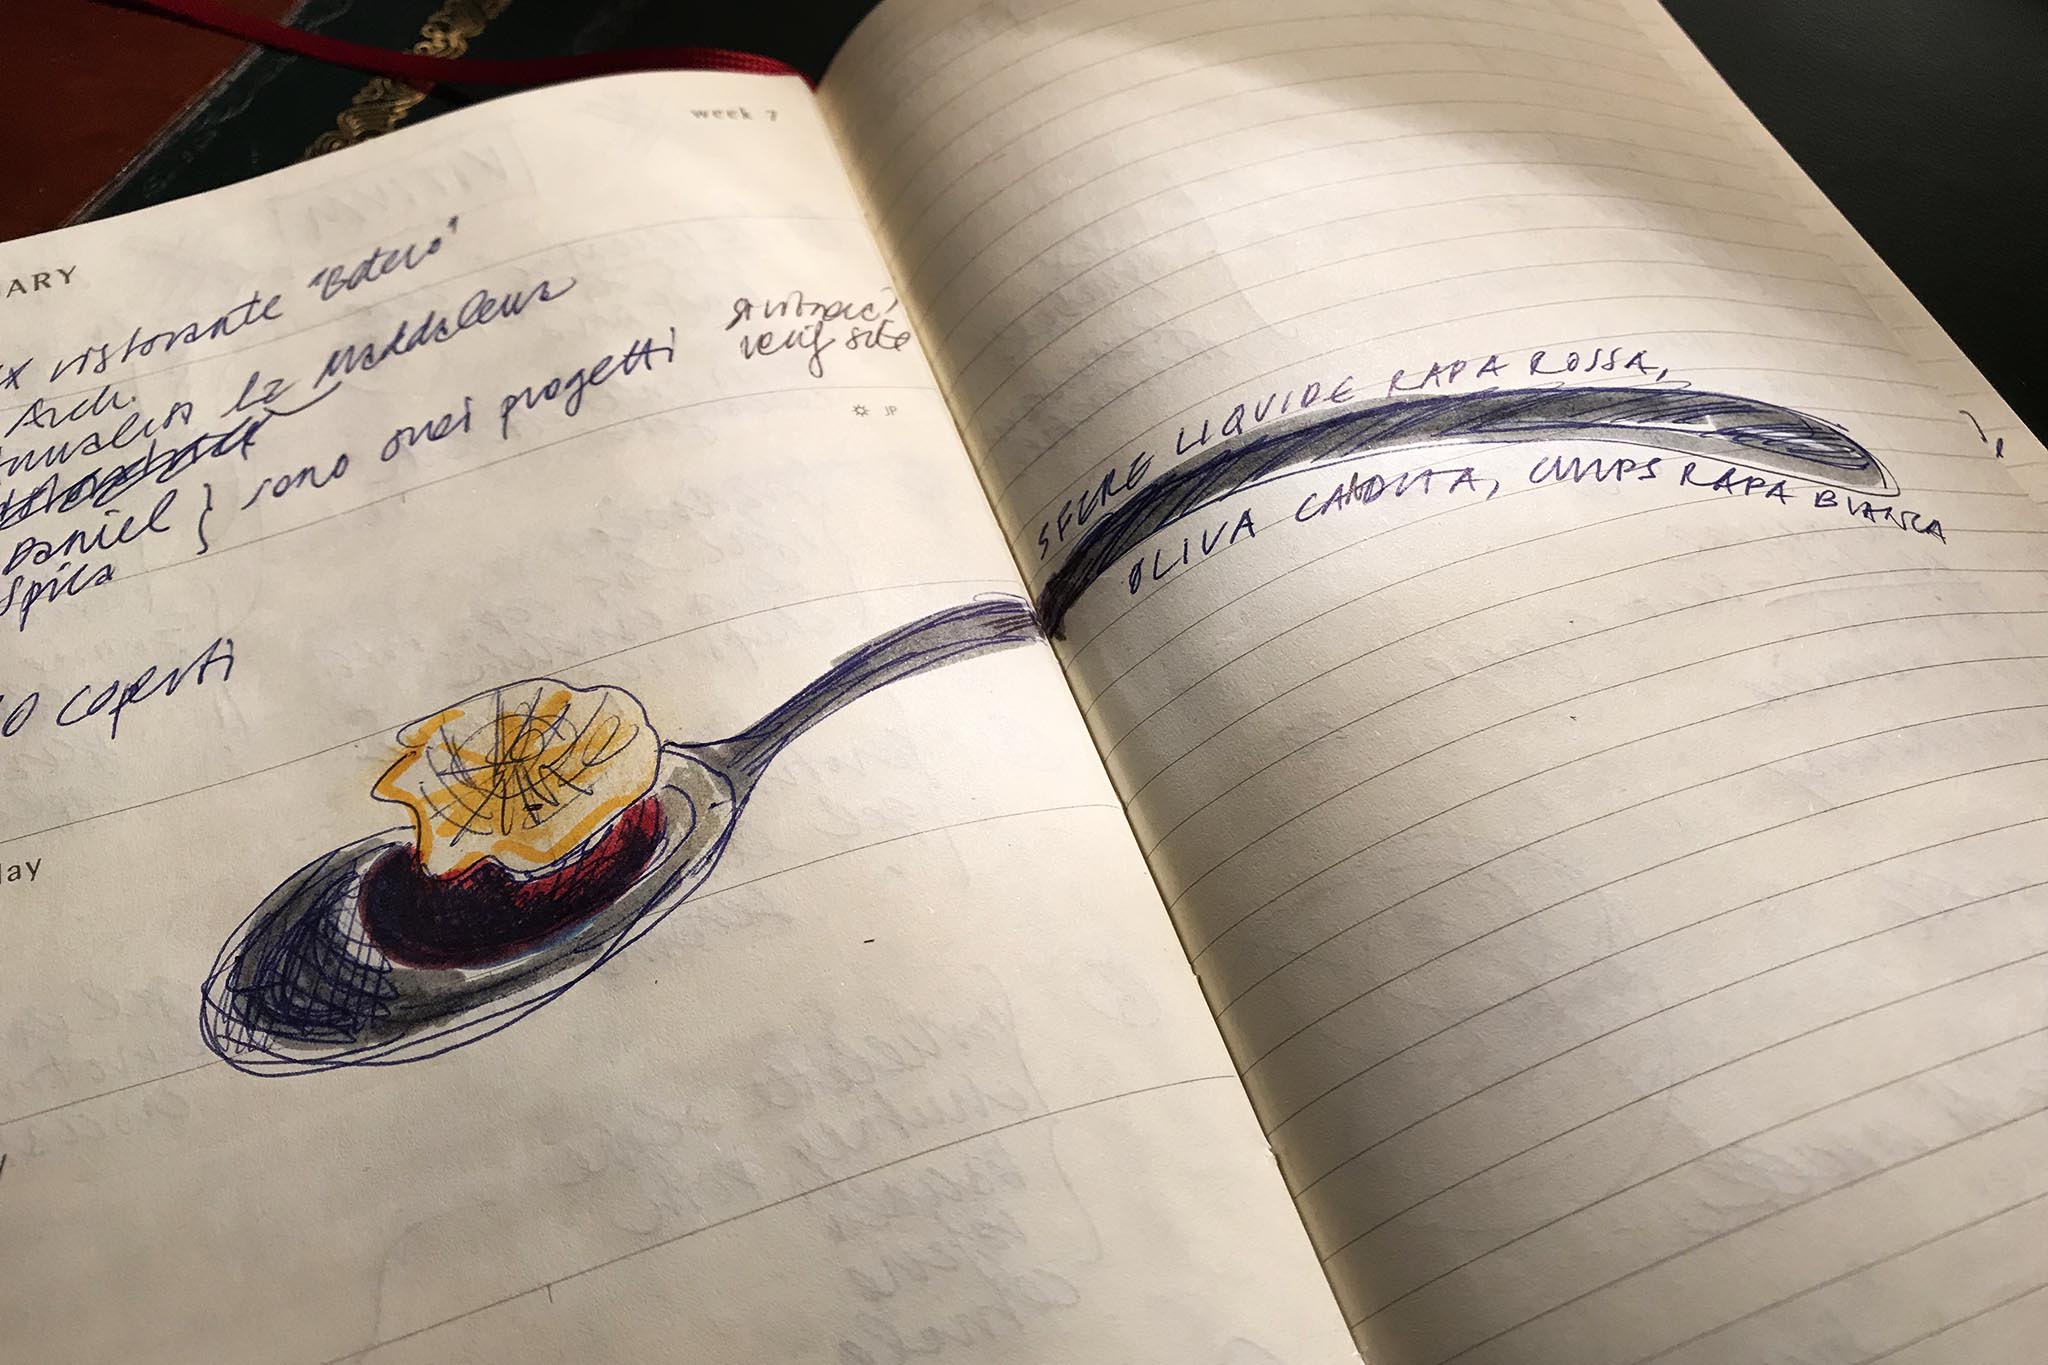 week 7
ARY
ex ristorante "Botero"
Arch.
la Maddalena
Daniel } sono suoi progetti
Spica
verif site
JP
0 coperti
day
SFERE LIQUIDE RAPA ROSSA,
OLIVA CANDITA, CHIPS RAPA BIANCA